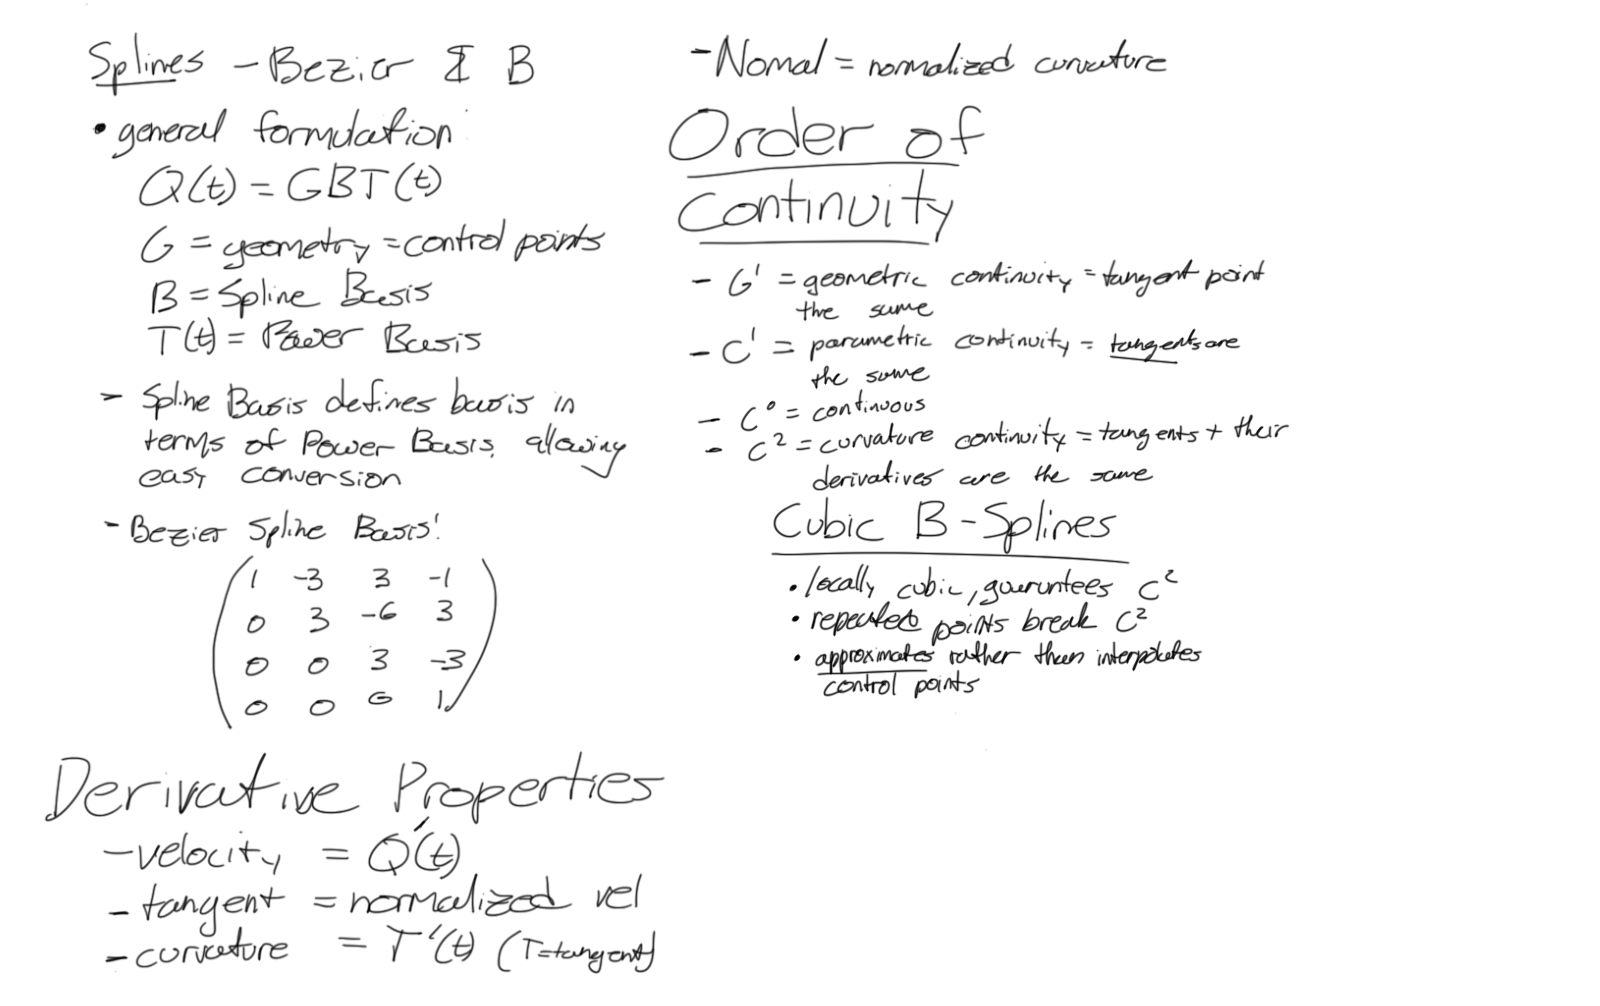 Splines - Bezier & B
• general formulation
Q(t) = GBT(t)
G = geometry = control points
B = Spline Basis
T(t) = Power Basis
- Spline Basis defines basis in
terms of Power Basis, allowing
easy conversion
- Bezier Spline Basis!
1 -3 3 -1
0 3 -6 3
0 0 3 -3
0 0 0 1
Derivative Properties
- velocity = Q'(t)
- tangent = normalized vel
- curvature = T'(t) (T=tangent)
- Nomal = normalized curvature
Order of
Continuity
- G¹ = geometric continuity = tangent point
the same
- C¹ = parametric continuity = tangents are
the same
- C⁰ = continuous
- C² = curvature continuity = tangents + their
derivatives are the same
Cubic B-Splines
• locally cubic, gueruntees C²
• repeated points break C²
• approximates rather than interpolates
control points